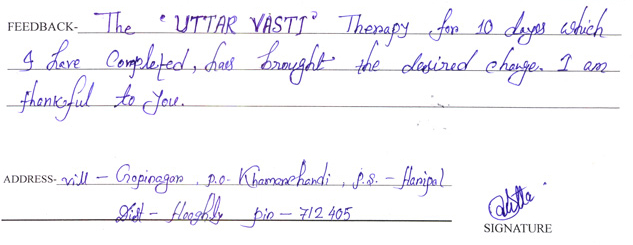 FEEDBACK- The "UTTAR VASTI" Therapy for 10 days which
I have Completed, has brought the desired change. I am
thankful to you.
ADDRESS- vill - Gopinagar, p.o- Khamarchandi, p.s. - Haripal
Dist - Hooghly pin - 712405
SIGNATURE